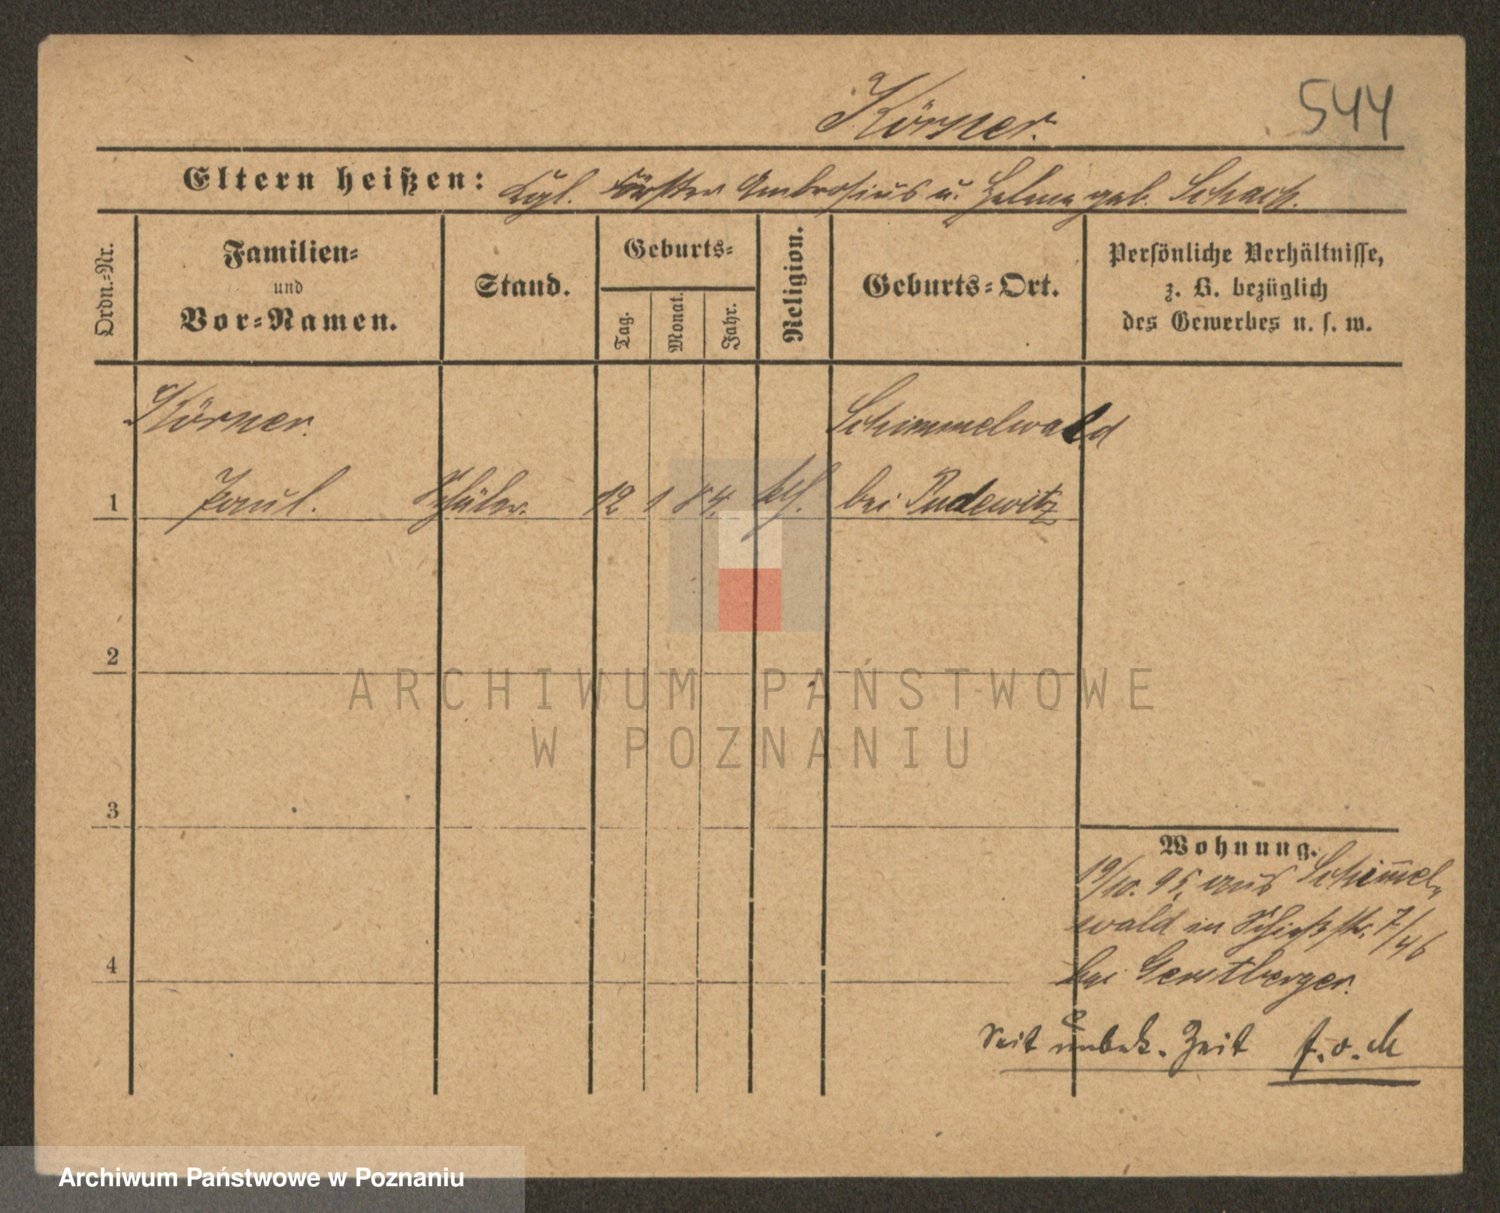 Körner.
544
Eltern heißen: Kgl. Förster Ambrosius u. Helene geb. Schack.
Ordn.=Nr.
Familien=
und
Vor=Namen.
Stand.
Geburts=
Tag.
Monat.
Jahr.
Religion.
Geburts=Ort.
Persönliche Verhältnisse,
z. B. bezüglich
des Gewerbes u. s. w.
Körner. Schimmelwald
1 Paul. Schüler. 12 1 84. kth. bei Pudewitz
2
ARCHIWUM PAŃSTWOWE
W POZNANIU
3
Wohnung.
19/10. 95. aus Schimmel-
wald in Schießstr. 7/46
bei Gerstberger.
4
Seit unbek. Zeit f. o. M
Archiwum Państwowe w Poznaniu